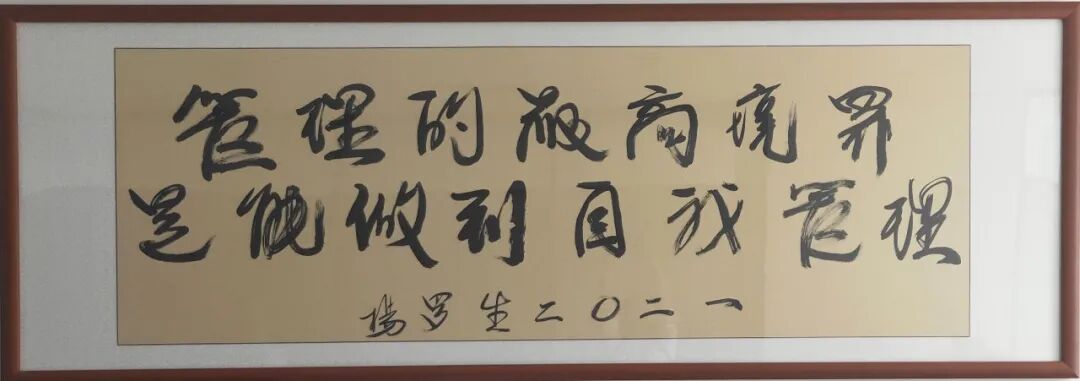 管理的最高境界
是能做到自我管理
杨罗生二〇二一